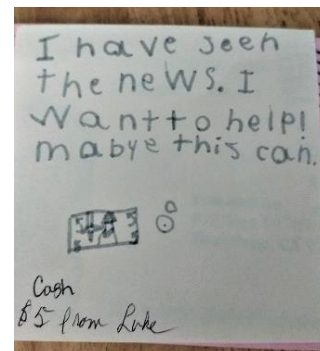 I have seen
the news. I
Want to help!
mabye this can.
Cash
$5 from Luke